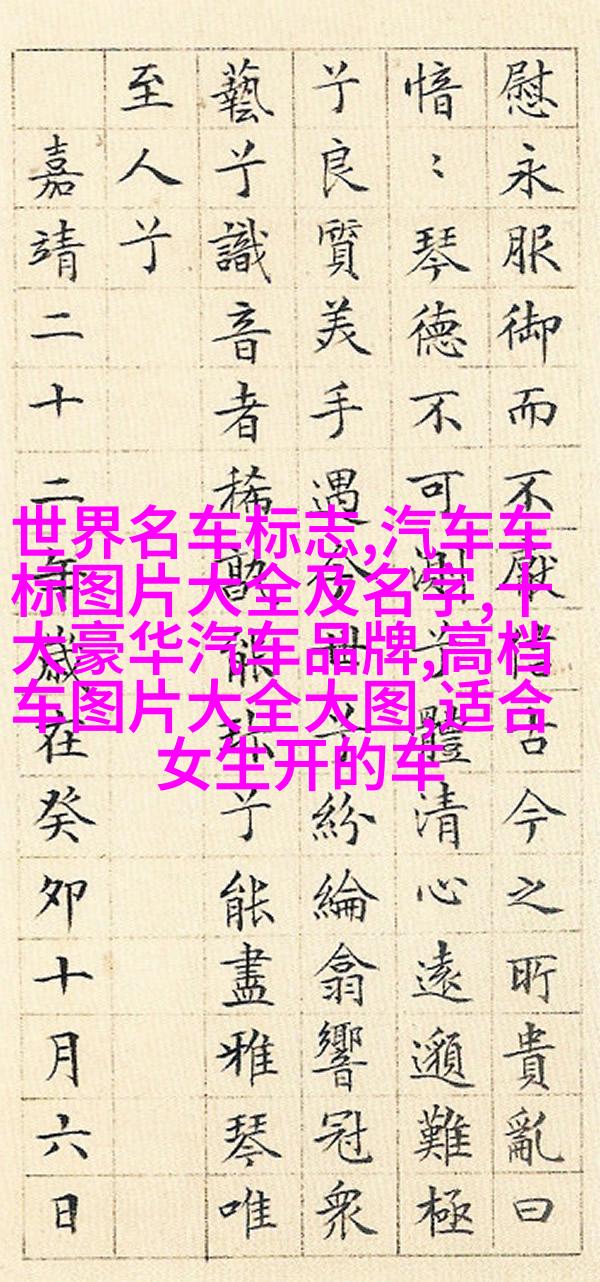 慰永服御而不厭信古今之所貴亂曰
愔〻琴德不可測兮體清心遠邈難極
兮良質美手遇今世兮紛綸翕響冠衆
藝兮識音者稀孰能珍兮能盡雅琴唯
至人兮
嘉靖二十二年歲在癸卯十月六日
世界名车标志,汽车车
标图片大全及名字,十
大豪华汽车品牌,高档
车图片大全大图,适合
女生开的车